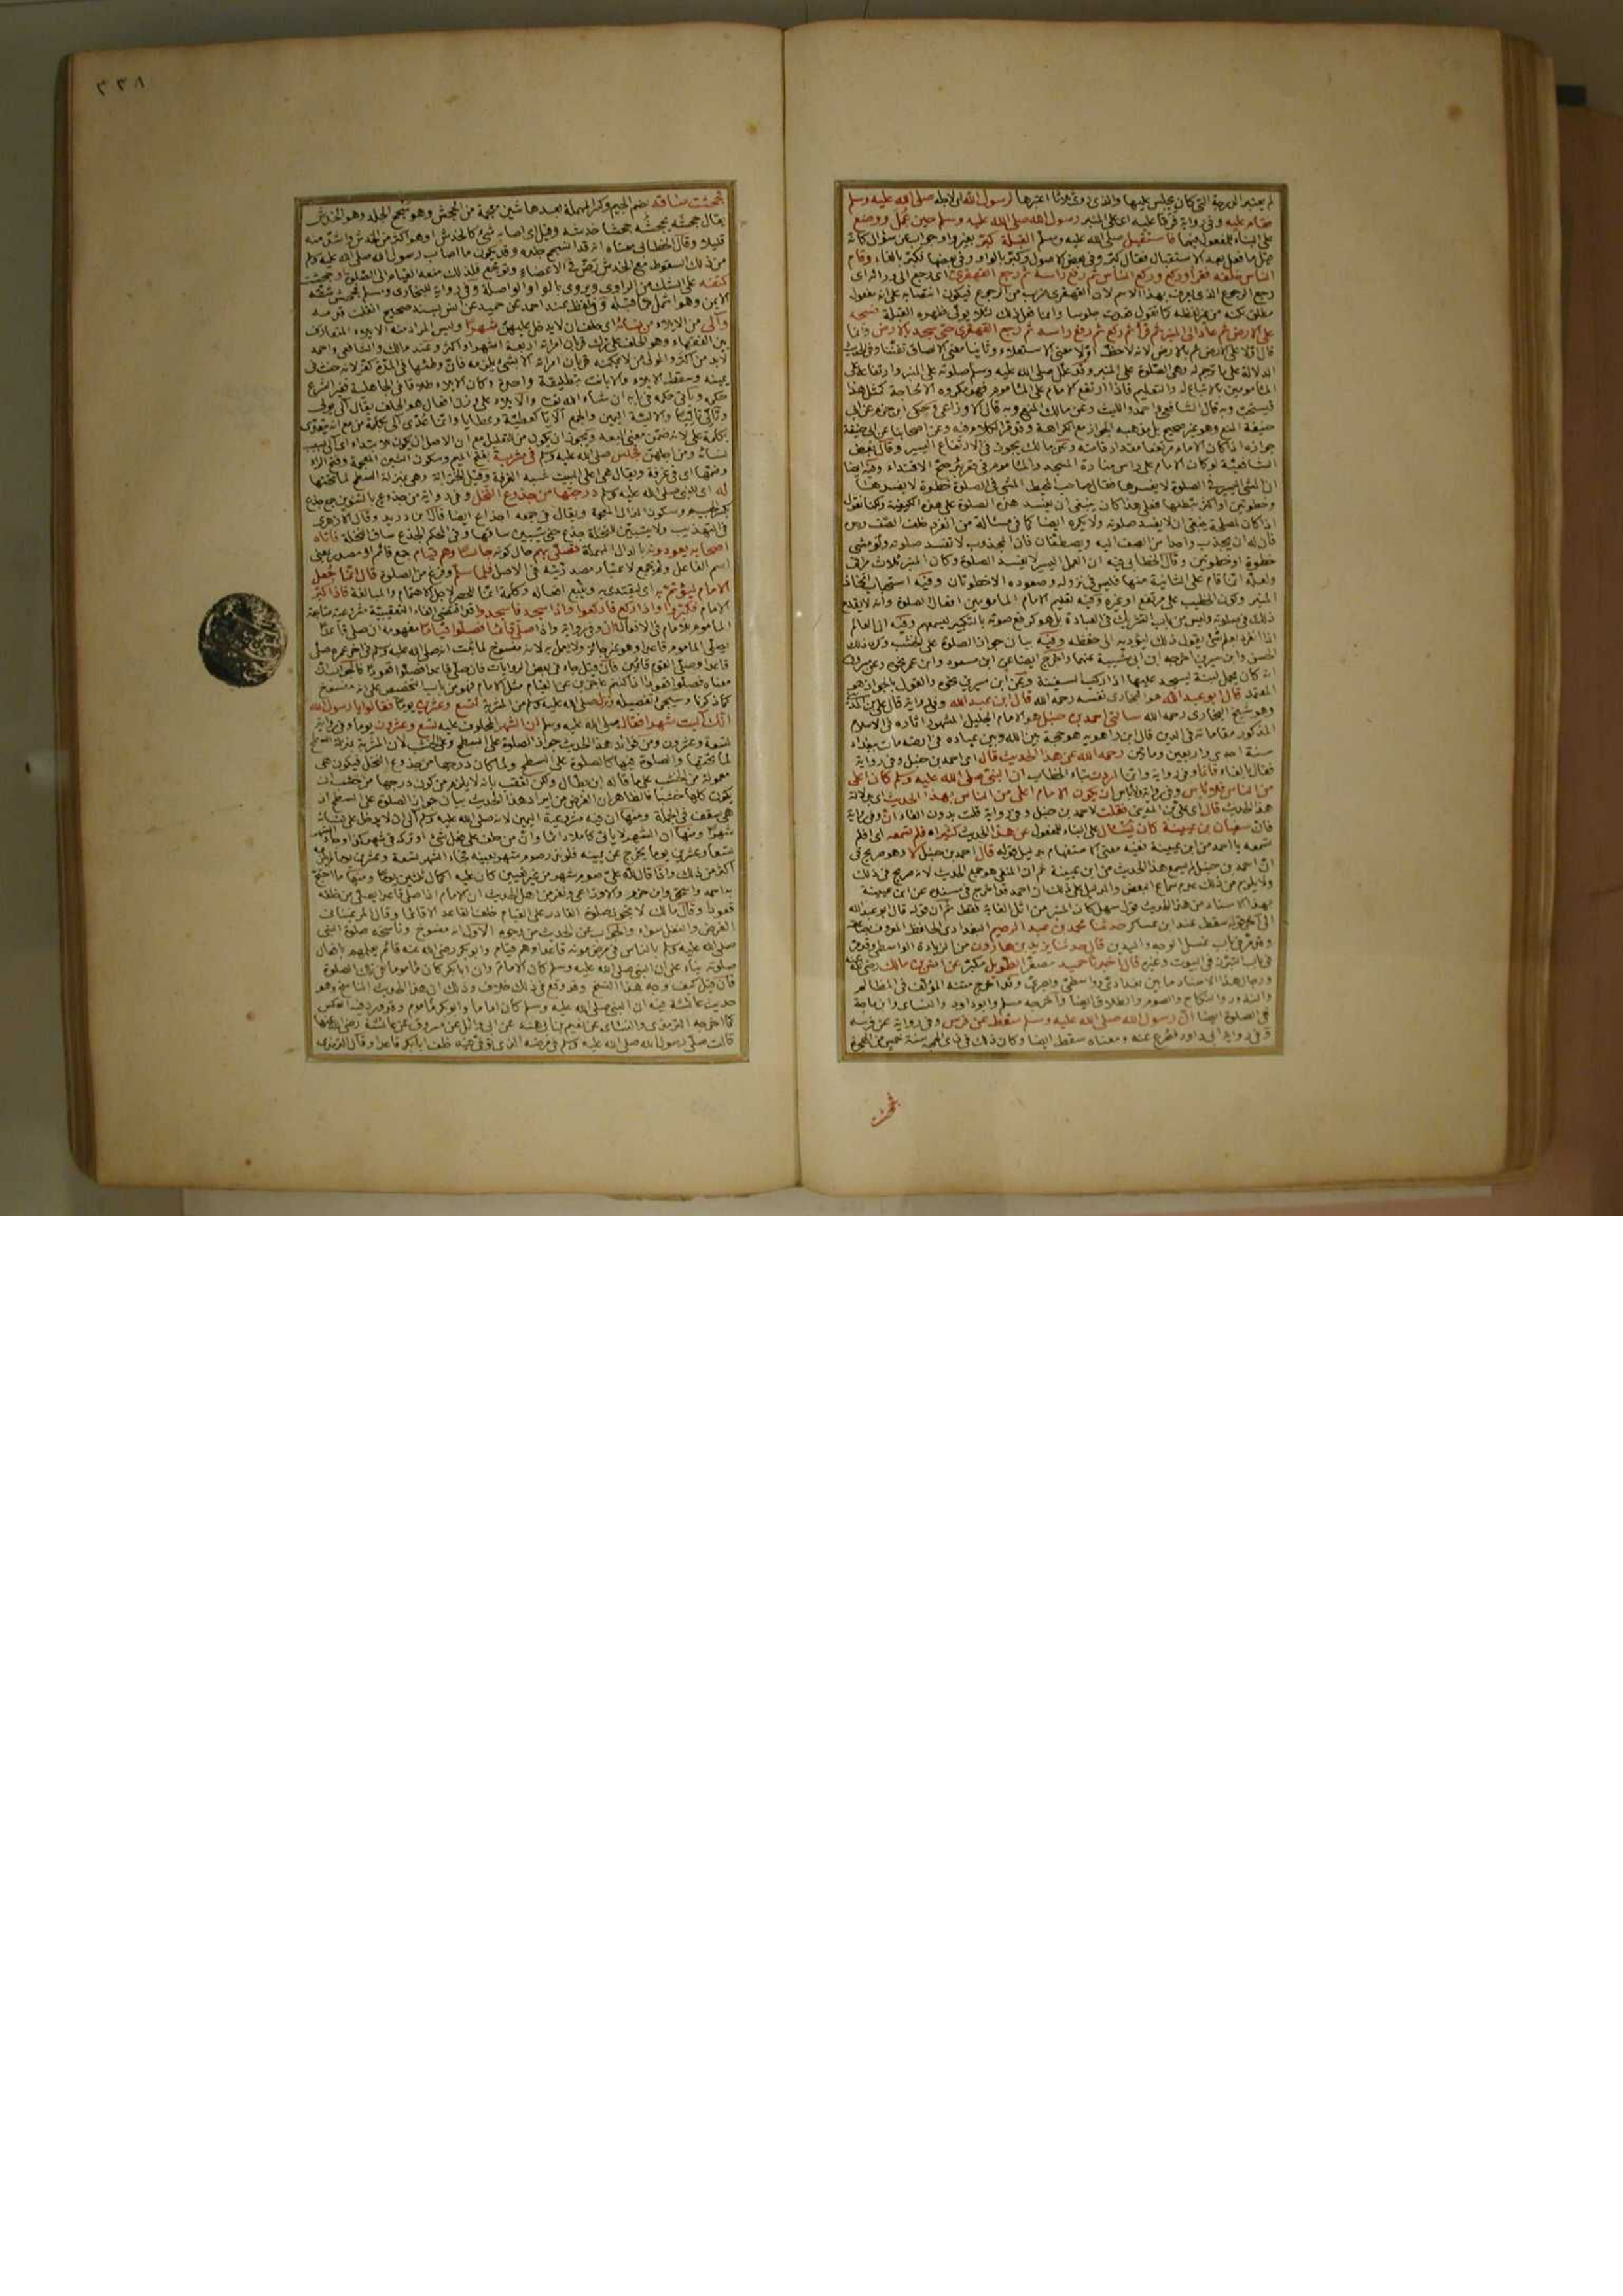 لم يعتبر الدرجة التى كان يجلس عليها والذى روى ثلاثا اعتبرها رسول الله اى لاجله صلى الله عليه وسلم
فقام عليه وفى رواية فرقى عليه اى على المنبر رسول الله صلى الله عليه وسلم حين عمل ووضع
على البناء للمفعول فيهما فاستقبل صلى الله عليه وسلم القبلة كبر بغير واو جواب عن سؤال كانه
قيل ما فعل بعد الاستقبال فقال كبر وفى بعض الاصول وكبر بالواو وفى بعضها فكبر بالفاء وقام
الناس خلفه فقرأ وركع وركع الناس ثم رفع راسه ثم رجع القهقرى اى رجع الى ورائه اى
رجع الرجوع الذى يعرف بهذا الاسم لان القهقرى ضرب من الرجوع فيكون انتصابه على انه مفعول
مطلق لكنه من غير لفظه كما تقول قعدت جلوسا وانما فعل ذلك لئلا يولى ظهره القبلة فسجد
على الارض ثم عاد الى المنبر ثم قرأ ثم ركع ثم رفع راسه ثم رجع القهقرى حتى سجد بالارض وانما
قال اولا على الارض ثم بالارض لانه لاحظ اولا معنى الاستعلاء وثانيا معنى الالصاق تفننا وفى الحديث
الدلالة على ما ترجم له وهى الصلوة على المنبر وقد علل صلى الله عليه وسلم صلوته على المنبر وارتفاعه على
المأمومين بالاتباع له والتعليم فاذا ارتفع الامام على المأموم فهو مكروه الا لحاجة كمثل هذا
فيستحب وبه قال الشافعى واحمد والليث وعن مالك المنع وبه قال الاوزاعى وحكى ابن حزم عن ابى
حنيفة المنع وهو غير صحيح بل مذهبه الجواز مع الكراهة
جوازه اذا كان الامام مرتفعا مقدار قامته وعن مالك يجوز فى الارتفاع اليسير وقال بعض
الشافعية لو كان الامام على راس منارة المسجد والمأموم فى قعر بئر صح الاقتداء وفيه ايضا
ان المشى اليسير فى الصلوة لا يفسدها فقال صاحب المحيط المشى فى الصلوة خطوة لا يفسدها
وخطوتين او اكثر يبطلها فعلى هذا كان ينبغى ان يفسد هذه الصلوة على هذه الكيفية ولكنا نقول
اذا كان لمصلحة ينبغى ان لا يفسد صلوته ولا يكره ايضا كما فى مسألة من انفرد خلف الصف وحده
فان له ان يجذب واحدا من الصف اليه ويصطفان فان المجذوب لا تفسد صلوته ولو مشى
خطوة او خطوتين وقال الخطابى فيه ان العمل اليسير لا يفسد الصلوة وكان المنبر ثلاث مراق
ولعله انما قام على الثانية منها فليس فى نزوله وصعوده الا خطوتان وفيه استحباب اتخاذ
المنبر وكون الخطيب على مرتفع او غيره وفيه تعليم الامام المأمومين افعال الصلوة وانه لا يقدح
ذلك فى صلوته وليس من باب التشريك فى العبادة بل هو كرفع صوته بالتكبير ليسمعهم وفيه ان العالم
اذا انفرد بعلم شئ يقول ذلك ليؤديه الى حفظه وفيه بيان جواز الصلوة على الخشب وكره ذلك
الحسن وابن سيرين اخرجه ابن ابى شيبة عنهما واخرج ايضا عن ابن مسعود وابن عمر نحوه وعن مسروق
انه كان يحمل لبنة ليسجد عليها اذا ركب السفينة وعن ابن سيرين نحوه والقول بالجواز هو
المعتمد قال ابو عبد الله هو البخارى نفسه رحمه الله قال ابن عبد الله وفى رواية قال على بن
وهو شيخ البخارى رحمه الله سألنى احمد بن حنبل هو الامام الجليل المشهور آثاره فى الاسلام
المذكور مقاماته فى الدين قال ابن راهويه هو حجة بين الله وبين عباده فى ارضه مات ببغداد
سنة احدى واربعين ومأتين رحمه الله عن هذا الحديث قال اى احمد بن حنبل وفى رواية
فقال بالفاء فانما وفى رواية وانما اردت بتاء الخطاب ان النبى صلى الله عليه وسلم كان اعلى
من الناس فلا بأس وفى رواية ولا بأس ان يكون الامام اعلى من الناس بهذا الحديث اى بدلالة
هذا الحديث قال اى على بن المدينى فقلت لاحمد بن حنبل وفى رواية قلت بدون الفاء ان وفى رواية
فان سفيان بن عيينة كان يُسأل على البناء للمفعول عن هذا الحديث كثيرا فلم تسمعه اى افلم
تسمعه يا احمد من ابن عيينة ففيه معنى الاستفهام بدليل قوله قال احمد بن حنبل لا وهو صريح فى
ان احمد بن حنبل لم يسمع هذا الحديث من ابن عيينة
ولا يلزم من ذلك عدم سماع البعض والدليل على ذلك ان احمد قد اخرج فى مسنده عن ابن عيينة
بهذا الاسناد من هذا الحديث قول سهل كان المنبر من اثل الغابة فقط ثم ان قوله قال ابو عبد الله
الى آخر قوله سقط عند ابن عساكر حدثنا محمد بن عبد الرحيم البغدادى الحافظ المعروف بصاعقة
وقد مر فى باب غسل الوجه واليدين قال حدثنا يزيد بن هارون من الزيادة الواسطى وقد مر
فى باب التبرز فى البيوت وغيره قال اخبرنا حميد مصغرا الطويل مكبرا عن انس بن مالك رضى الله عنه
ورجال هذا الاسناد ما بين بغدادى وواسطى وبصرى وقد اخرج متنه المؤلف فى المظالم
والنذور والنكاح والصوم والطلاق ايضا واخرجه مسلم وابو داود والنسائى وابن ماجة
فى الصلوة ايضا ان رسول الله صلى الله عليه وسلم سقط عن فرس وفى رواية عن فرسه
وفى رواية ابى داود فصرع عنه ومعناه سقط ايضا وكان ذلك فى ذى الحجة سنة خمس من الهجرة
فجحشت
٣٣٨
فجحشت ساقه بضم الجيم وكسر المهملة بعدها شين معجمة من الجحش وهو سحج الجلد وهو الخدش
يقال جحشه يجحشه جحشا خدشه وقيل ان اصابه شئ كالخدش او هو اكثر من الخدش واشق منه
قليلا وقال الخطابى معناه انه قد انسحج جلده وقد يكون ما اصاب رسول الله صلى الله عليه وسلم
من ذلك السقوط مع الخدش رض فى الاعضاء وتوجع فلذلك منعه القيام الى الصلوة او جحشت
كتفه على الشك من الراوى ويروى بالواو الواصلة وفى رواية للبخارى ومسلم فجحش شقه
الايمن وهو اشمل مما قبله وفى لفظ عند احمد عن حميد عن انس بسند صحيح انفكت قدمه
وآلى من الايلاء من نسائه اى حلف ان لا يدخل عليهن شهرا وليس المراد منه الايلاء المتعارف
بين الفقهاء وهو الحلف على ترك قربان امرأته اربعة اشهر او اكثر وعند مالك والشافعى واحمد
لا بد من اكثر والمولى من لا يمكنه قربان امرأته الا بشئ يلزمه فان وطئها فى المدة كفر لانه حنث فى
يمينه وسقط الايلاء والا بانت بتطليقة واحدة وكان الايلاء طلاقا فى الجاهلية فغير الشرع
حكمه ويأتى حكمه فى بابه ان شاء الله تعالى والايلاء على وزن افعال هو الحلف يقال آلى يولى
بكلمة على لانه ضمن معنى البعد ويجوز ان يكون من للتعليل مع ان الاصل ان يكون للابتداء اى آلى بسبب
نسائه ومن اجلهن فجلس صلى الله عليه وسلم فى مشربة بفتح الميم وسكون الشين المعجمة وفتح الراء
وضمها اى فى غرفة ويقال هى اعلى البيت شبيه الغرفة وقيل الخزانة وهى بمنزلة السطح لما تحتها
له اى للنبى صلى الله عليه وسلم درجتها من جذوع النخل وفى رواية من جذوع بالتنوين جمع جذع
بكسر الجيم وسكون الذال المعجمة ويقال فى جمعه اجذاع ايضا قال ابن دريد وقال الازهرى
فى التهذيب ولا يتبين للنخلة جذع حتى يتبين ساقها وفى المحكم الجذع ساق النخلة فاتاه
اصحابه يعودونه بالدال المهملة فصلى بهم حال كونه جالسا وهم قيام جمع قائم او مصدر بمعنى
اسم الفاعل ولم يجمع لاعتبار مصدريته فى الاصل فلما سلم وفرغ من الصلوة قال انما جُعل
الامام ليؤتم به اى ليقتدى به ويتبع افعاله وكلمة انما للحصر لاجل الاهتمام والمبالغة فاذا كبر
الامام فكبروا واذا ركع فاركعوا واذا سجد فاسجدوا
المأموم للامام فى الافعال ان وفى رواية واذا صلى قائما فصلوا قياما مفهومه ان صلى قاعدا
يصلى المأموم قاعدا وهو غير جائز ولا يعمل به لانه منسوخ لما ثبت انه صلى الله عليه وسلم فى آخر عمره صلى
قاعدا وصلى القوم قائمين فان قيل جاء فى بعض الروايات فان صلى قاعدا فصلوا قعودا فالجواب ان
معناه فصلوا قعودا اذا كنتم عاجزين عن القيام مثل الامام فهو من باب التخصيص على انه منسوخ
كما ذكرنا وسيجئ تفصيله ونزل صلى الله عليه وسلم من المشربة لتسع وعشرين يوما فقالوا يا رسول الله
انك آليت شهرا فقال صلى الله عليه وسلم ان الشهر المحلوف عليه تسع وعشرون يوما وفى رواية
تسعة وعشرون ومن فوائد هذا الحديث جواز الصلوة على السطح وعلى الخشب لان المشربة بمنزلة السطح
لما تحتها والصلوة فيها كالصلوة على السطح ولما كان درجها من جذوع النخل فيكون هى
معمولة من الخشب على ما قاله ابن بطال ولكن تعقب بانه لا يلزم من كون درجها من خشب ان
يكون كلها خشبا فالظاهر ان الغرض من ايراد هذا الحديث بيان جواز الصلوة على السطح اذ
هى سقف فى الجملة ومنها ان فيه مشروعية اليمين لانه صلى الله عليه وسلم آلى ان لا يدخل على نسائه
شهرا ومنها ان الشهر لا يأتى كاملا دائما وان من حلف على فعل شئ او تركه فى شهر كذا وجاء الشهر
تسعا وعشرين يوما يخرج عن يمينه فلو نذر صوم شهر بعينه فجاء الشهر تسعة وعشرين يوما لم يلزمه
اكثر من ذلك واذا قال لله على صوم شهر من غير تعيين كان عليه اكمال ثلثين يوما ومنها ما احتج
به احمد واسحق وابن حزم والاوزاعى ونفر من اهل الحديث ان الامام اذا صلى قاعدا يصلى من خلفه
قعودا وقال مالك لا يجوز صلوة القادر على القيام خلف القاعد لا قائما ولا قاعدا
الفرض والنفل سواء والجواب عن الحديث من وجوه الاول انه منسوخ وناسخه صلوة النبى
صلى الله عليه وسلم بالناس فى مرض موته قاعدا وهم قيام وابو بكر رضى الله عنه قائم يعلمهم بافعال
صلوته بناء على ان النبى صلى الله عليه وسلم كان الامام وان ابا بكر كان مأموما فى تلك الصلوة
فان قيل كيف وجه هذا النسخ وقد وقع فى ذلك خلاف وذلك ان هذا الحديث الناسخ وهو
حديث عائشة فيه ان النبى صلى الله عليه وسلم كان اماما وابو بكر مأموم وقد ورد فيه العكس
كما اخرجه الترمذى والنسائى عن نعيم بن ابى هند عن ابى وائل عن مسروق عن عائشة رضى الله عنها
قالت صلى رسول الله صلى الله عليه وسلم فى مرضه الذى توفى فيه خلف ابى بكر قاعدا وقال الترمذى